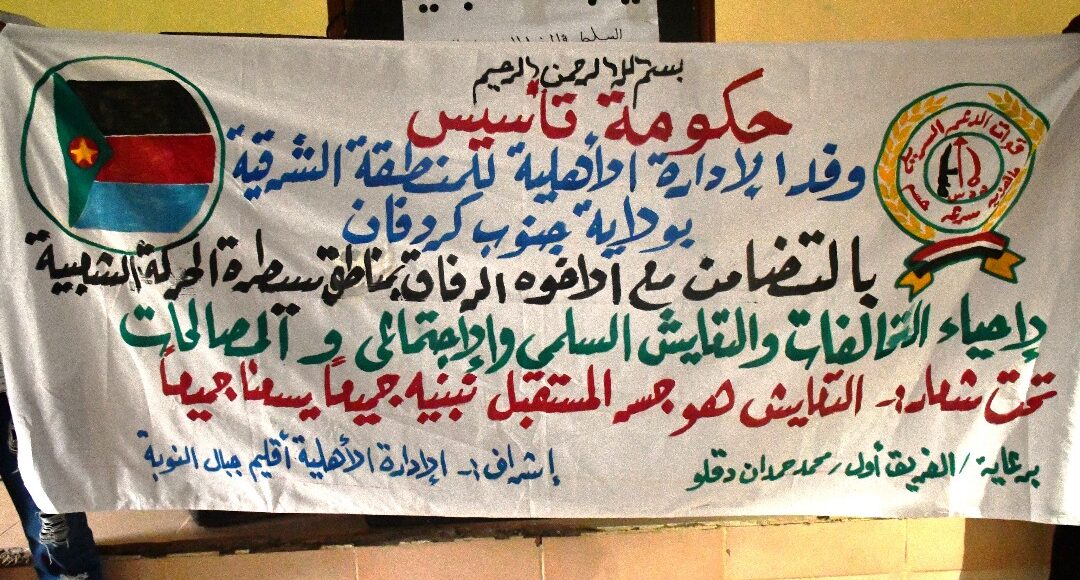 بسم الله الرحمن الرحيم
حكومة تأسيس
وفد الإدارة الأهلية للمنطقة الشرقية
بولاية جنوب كردفان
بالتضامن مع الاخوه الرفاق بمناطق سيطرة الحركة الشعبية
لإحياء التحالفات والتعايش السلمي والإجتماعي و المصالحات
تحت شعار:- التعايش هو جسر المستقبل نبنيه جميعاً يسعنا جميعاً
برعاية / الفريق أول / محمد حمدان دقلو
إشراف:- الإدارة الأهلية أقليم جبال النوبة
قوات الدعم السريع
جاهزية سرعة حسم